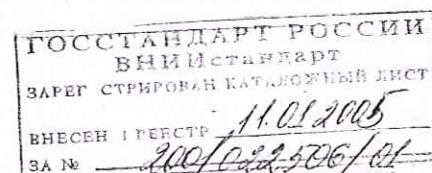 ГОССТАНДАРТ РОССИИ
ВНИИстандарт
ЗАРЕГ СТРИРОВАН КАТАЛОЖНЫЙ ЛИСТ
ВНЕСЕН В РЕЕСТР 11.01.2005
ЗА № 200/022506/01